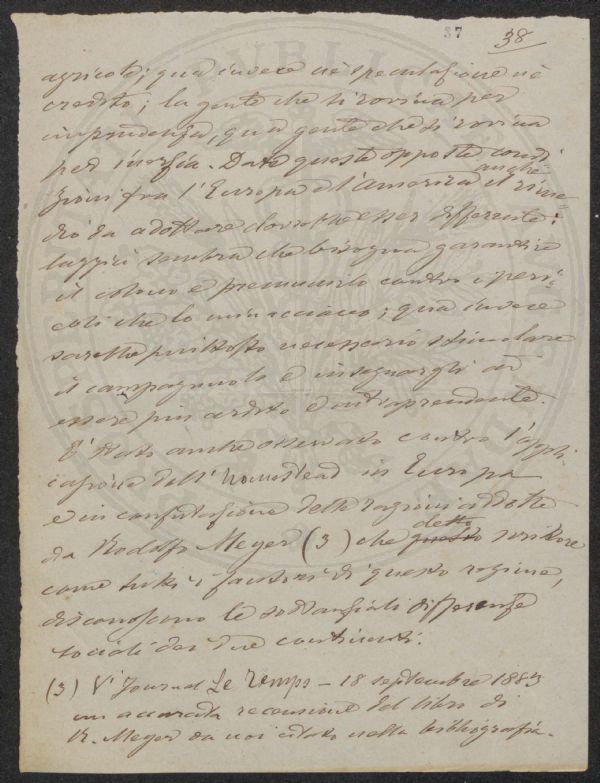 37 38
agricole; qua invece nè speculazione nè
credito; la gente che si rovina per
imprudenza, qua gente che si rovina
per inerzia. Date queste opposte condi
zioni fra l'Europa e l'America anche il rime=
dio da adottare dovrebbe esser differente:
laggiù sembra che bisogna garantire
il colono e premunirlo contro i peri=
coli che lo minacciano; qua invece
sarebbe piuttosto necessario stimolare
il campagnuolo e insegnargli ad
essere più ardito e intraprendente.
E' stato anche osservato contro l'appli
cazione dell'Homestead in Europa
e in confutazione delle ragioni addotte
da Rodolfo Meyer (3) che questo detto scrittore
come tutti i fautori di questo regime,
disconoscono le sostanziali differenze
sociali dei due continenti.
(3) V' Journal Le Temps - 18 septembre 1883
un accurata recensione del libro di
R. Meyer da noi citato nella bibliografia.